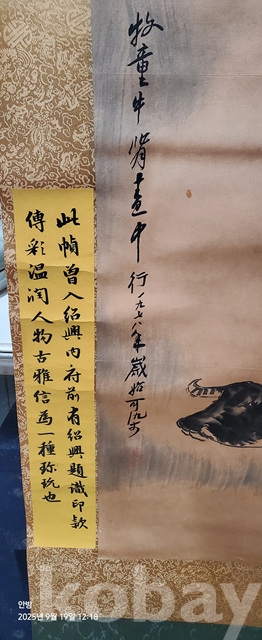 牧童牛背畫中行一九七八年歲始可染
此幀曾入紹興內府前有紹興題識印款
傅彩溫潤人物古雅信為一種珍玩也
안방
2025년 9월 19일 12:18
kobay